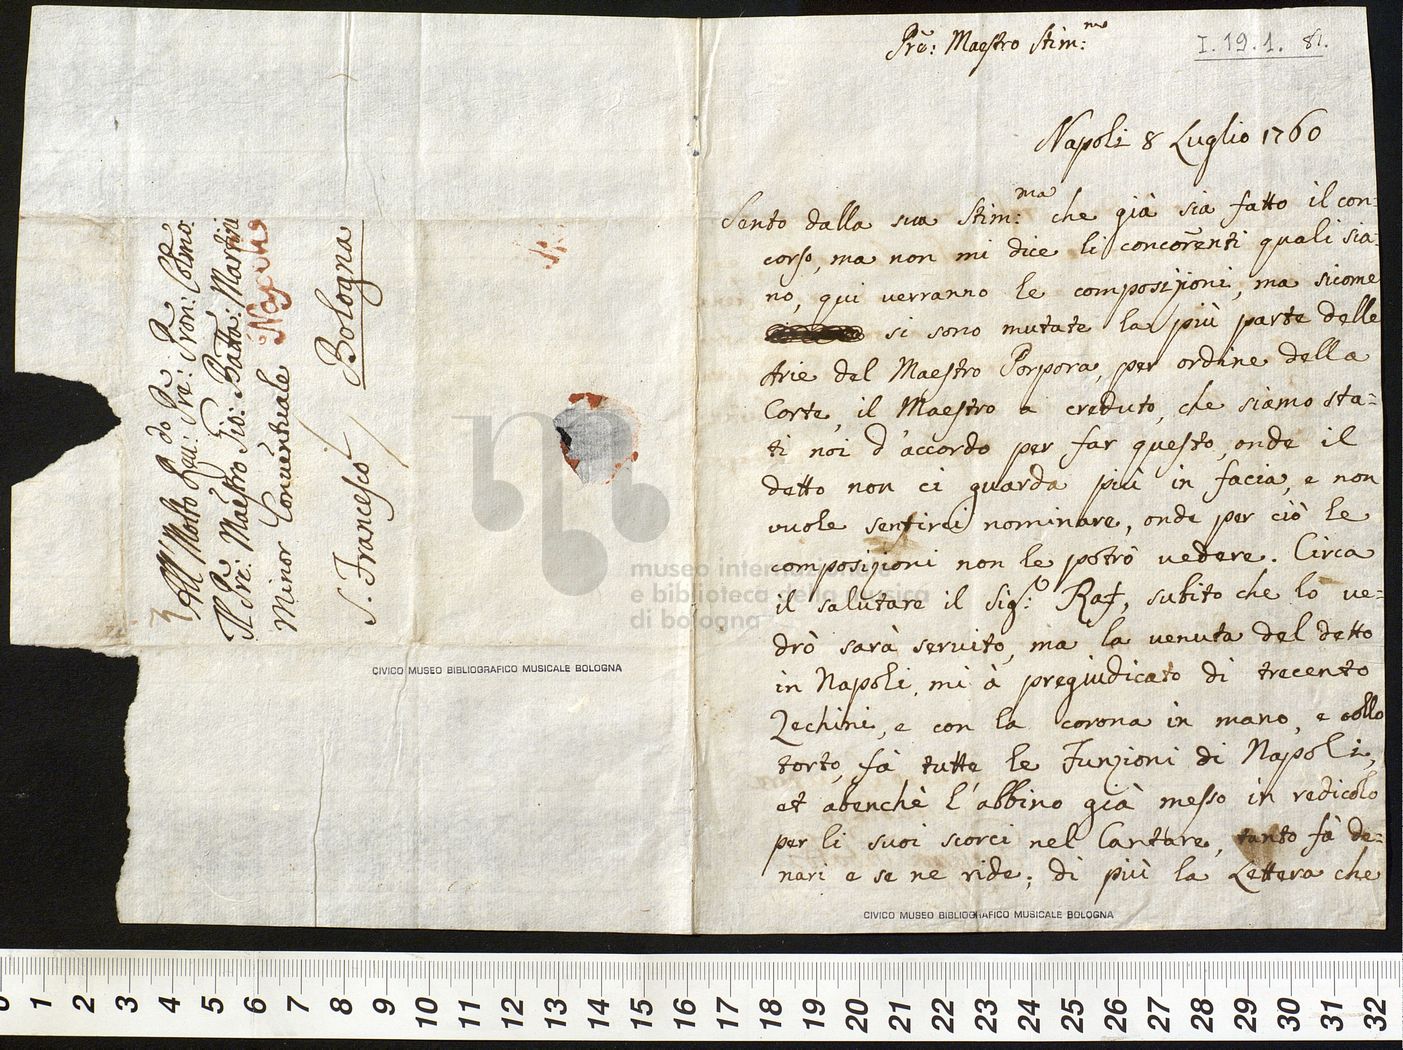 All' Molto Rev:do Pre: Pre:
Il Pre: Maestro Gio: Batta: Martini
Minor Conventuale
Napoli
S. Francesco / Bologna
CIVICO MUSEO BIBLIOGRAFICO MUSICALE BOLOGNA
Pre: Maestro Stim:mo
I. 19. 1. 81.
Napoli 8 Luglio 1760
Sento dalla sua Stim:ma che già sia fatto il con=
corso, ma non mi dice li concorrenti quali sia=
no, qui verranno le composizioni, ma sicome
si sono mutate la più parte delle
Arie del Maestro Porpora, per ordine della
Corte, il Maestro a creduto, che siamo sta=
ti noi d'accordo per far questo, onde il
detto non ci guarda più in facia, e non
vuole sentirci nominare, onde per ciò le
composizioni non le potrò vedere. Circa
il salutare il Sig:o Raf, subito che lo ve=
drò sarà servito, ma la venuta del detto
in Napoli, mi à pregiudicato di trecento
Zechini, e con la corona in mano, e collo
torto, fà tutte le Funzioni di Napoli,
et abenchè l'abbino già messo in redicolo
per li suoi scorci nel Cantare, tanto fà de=
nari e se ne ride; di più la Lettera che
CIVICO MUSEO BIBLIOGRAFICO MUSICALE BOLOGNA
museo internazionale
e biblioteca della musica
di bologna
0 1 2 3 4 5 6 7 8 9 10 11 12 13 14 15 16 17 18 19 20 21 22 23 24 25 26 27 28 29 30 31 32